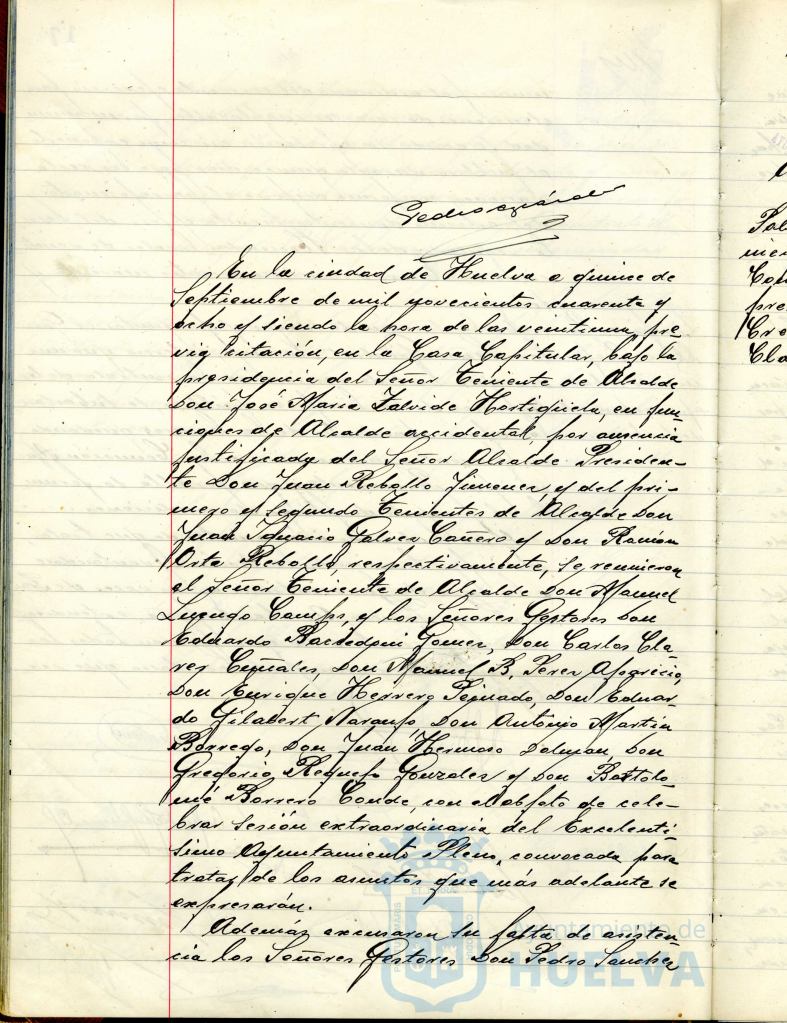 Pedro
En la ciudad de Huelva a quince de
Septiembre de mil novecientos cuarenta y
ocho y siendo la hora de las veintiuna, pre-
via citación, en la Casa Capitular, bajo la
presidencia del Señor Teniente de Alcalde
Don José Maria Zalvide Hortigüela, en fun-
ciones de Alcalde accidental, por ausencia
justificada del Señor Alcalde Presiden-
te Don Juan Rebollo Jimenez, y del pri-
mero y segundo Tenientes de Alcalde Don
Juan Ignacio Galvez Cañero y Don Ramón
Orta Rebollo, respectivamente, se reunieron
el Señor Teniente de Alcalde Don Manuel
Luengo Camps, y los Señores Gestores Don
Eduardo Gomez, Don Carlos Cla-
rez Don Manuel B. Perez Aparicio,
Don Enrique Herrero Peinado, Don Eduar-
do Gilabert Naranjo, Don Antonio Martin
Borrego, Don Juan Hermoso Don
Gregorio Requejo Gonzalez y Don Bartolo-
mé Borrero Conde, con el objeto de cele-
brar sesión extraordinaria del Excelentí-
simo Ayuntamiento Pleno, convocada para
tratar de los asuntos que más adelante se
expresarán.
Además excusaron su falta de asisten-
cia los Señores Gestores Don Pedro Sanchez
Ayuntamiento de
HUELVA